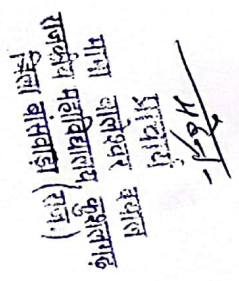 प्राचार्य
मामा बालेश्वर दयाल
राजकीय महाविद्यालय कुशलगढ़
जिला बांसवाड़ा (राज.)